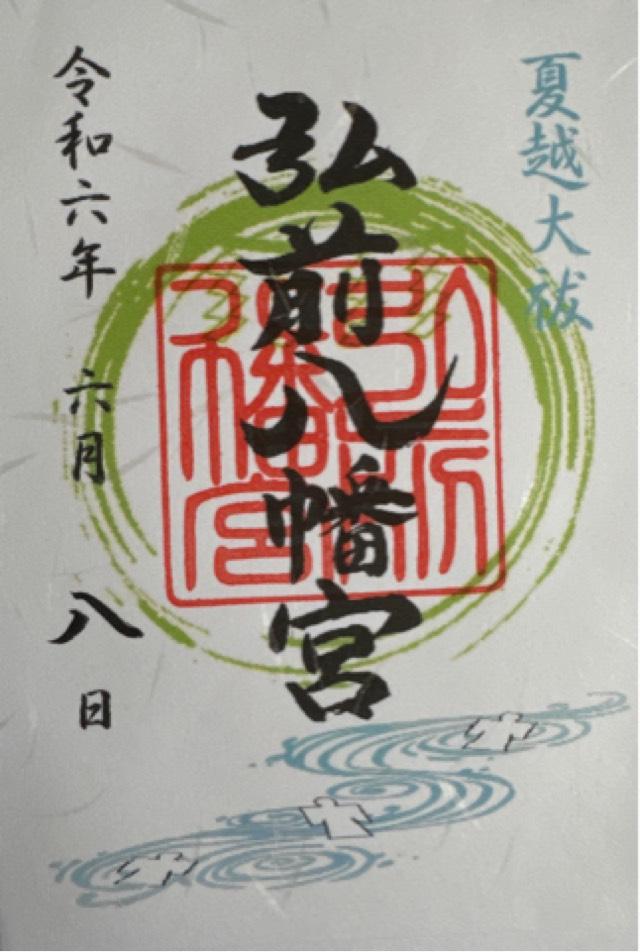 夏越大祓
弘前八幡宮
令和六年 六月 八日
弘前八幡宮